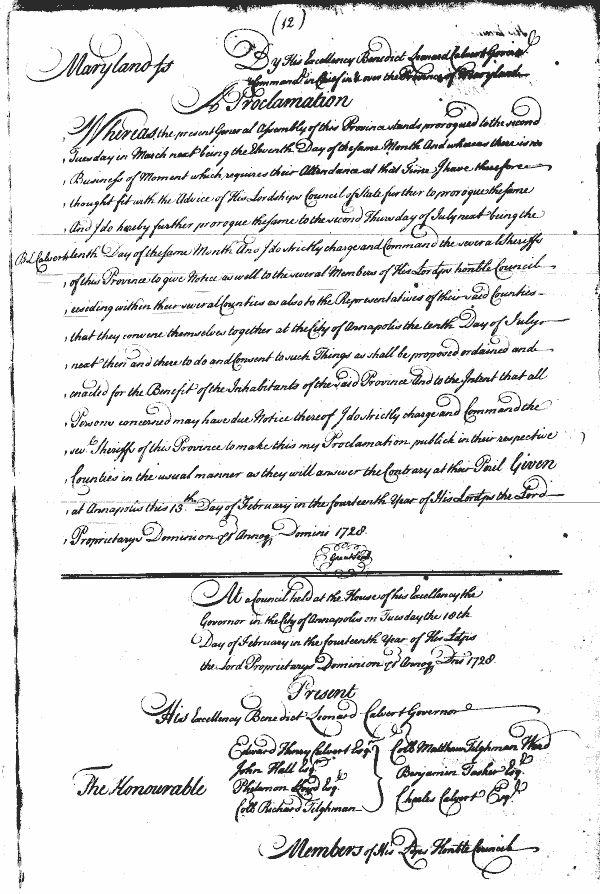 (12)
Maryland ss
By His Excellency Benedict Leonard Calvert Govern.r
& Command.r in Chief in & over the Province of Maryland
A Proclamation
Whereas the present General Assembly of this Province stands prorogued to the second
Tuesday in March next being the Eleventh Day of the same Month And whereas there is no
Business of Moment which requires their Attendance at that Time I have therefore
thought fit with the Advice of His Lordships Council of State further to prorogue the same
And I do hereby further prorogue the same to the second Thursday of July next being the
B.L. Calvert
tenth Day of the same Month And I do strictly charge and Command the several Sheriffs
of this Province to give Notice as well to the several Members of His Lordps honble Council
residing within their several Counties as also to the Representatives of their said Counties
that they convene themselves together at the City of Annapolis the tenth Day of July
next then and there to do and Consent to such Things as shall be proposed ordained and
enacted for the Benefit of the Inhabitants of the said Province And to the Intent that all
Persons concerned may have due Notice thereof I do strictly charge and Command the
sev.l Sheriffs of this Province to make this my Proclamation publick in their respective
Counties in the usual manner as they will answer the Contrary at their Peril Given
at Annapolis this 13th Day of February in the fourteenth Year of His Lordps the Lord
Proprietarys Dominion &c Annoq Domini 1728
Great Seal
At a Council held at the House of his Excellency the
Governor in the City of Annapolis on Tuesday the 18th
Day of February in the fourteenth Year of His Ldps
the Lord Proprietarys Dominion &c Annoq Dni 1728
Present
His Excellency Benedict Leonard Calvert Governor
The Honourable
Edward Henry Calvert Esq.r
John Hall Esq.r
Philemon Lloyd Esq.r
Coll Richard Tilghman
Coll Matthew Tilghman Ward
Benjamin Tasker Esq.r
Charles Calvert Esq.r
Members of His Ldps Honble Council